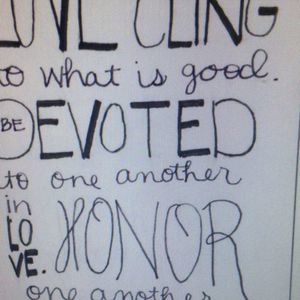 LOVE CLING
to what is good.
BE DEVOTED
to one another
in LOVE. HONOR
one another